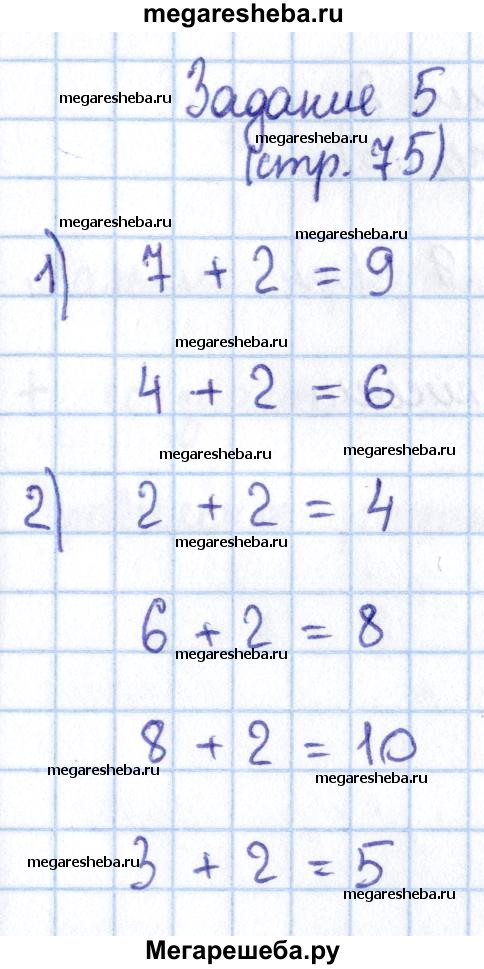 megaresheba.ru
megaresheba.ru
Задание 5
megaresheba.ru
(стр. 75)
megaresheba.ru
megaresheba.ru
1) 7 + 2 = 9
megaresheba.ru
4 + 2 = 6
megaresheba.ru
megaresheba.ru
2) 2 + 2 = 4
megaresheba.ru
6 + 2 = 8
megaresheba.ru
8 + 2 = 10
megaresheba.ru
megaresheba.ru
3 + 2 = 5
megaresheba.ru
megaresheba.ru
Мегарешеба.ру